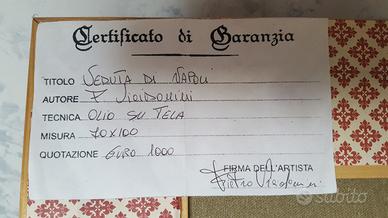 Certificato di Garanzia
TITOLO VEDUTA DI NAPOLI
AUTORE
TECNICA OLIO SU TELA
MISURA 70x100
QUOTAZIONE EURO 1000
FIRMA DELL'ARTISTA
Pietro
subito